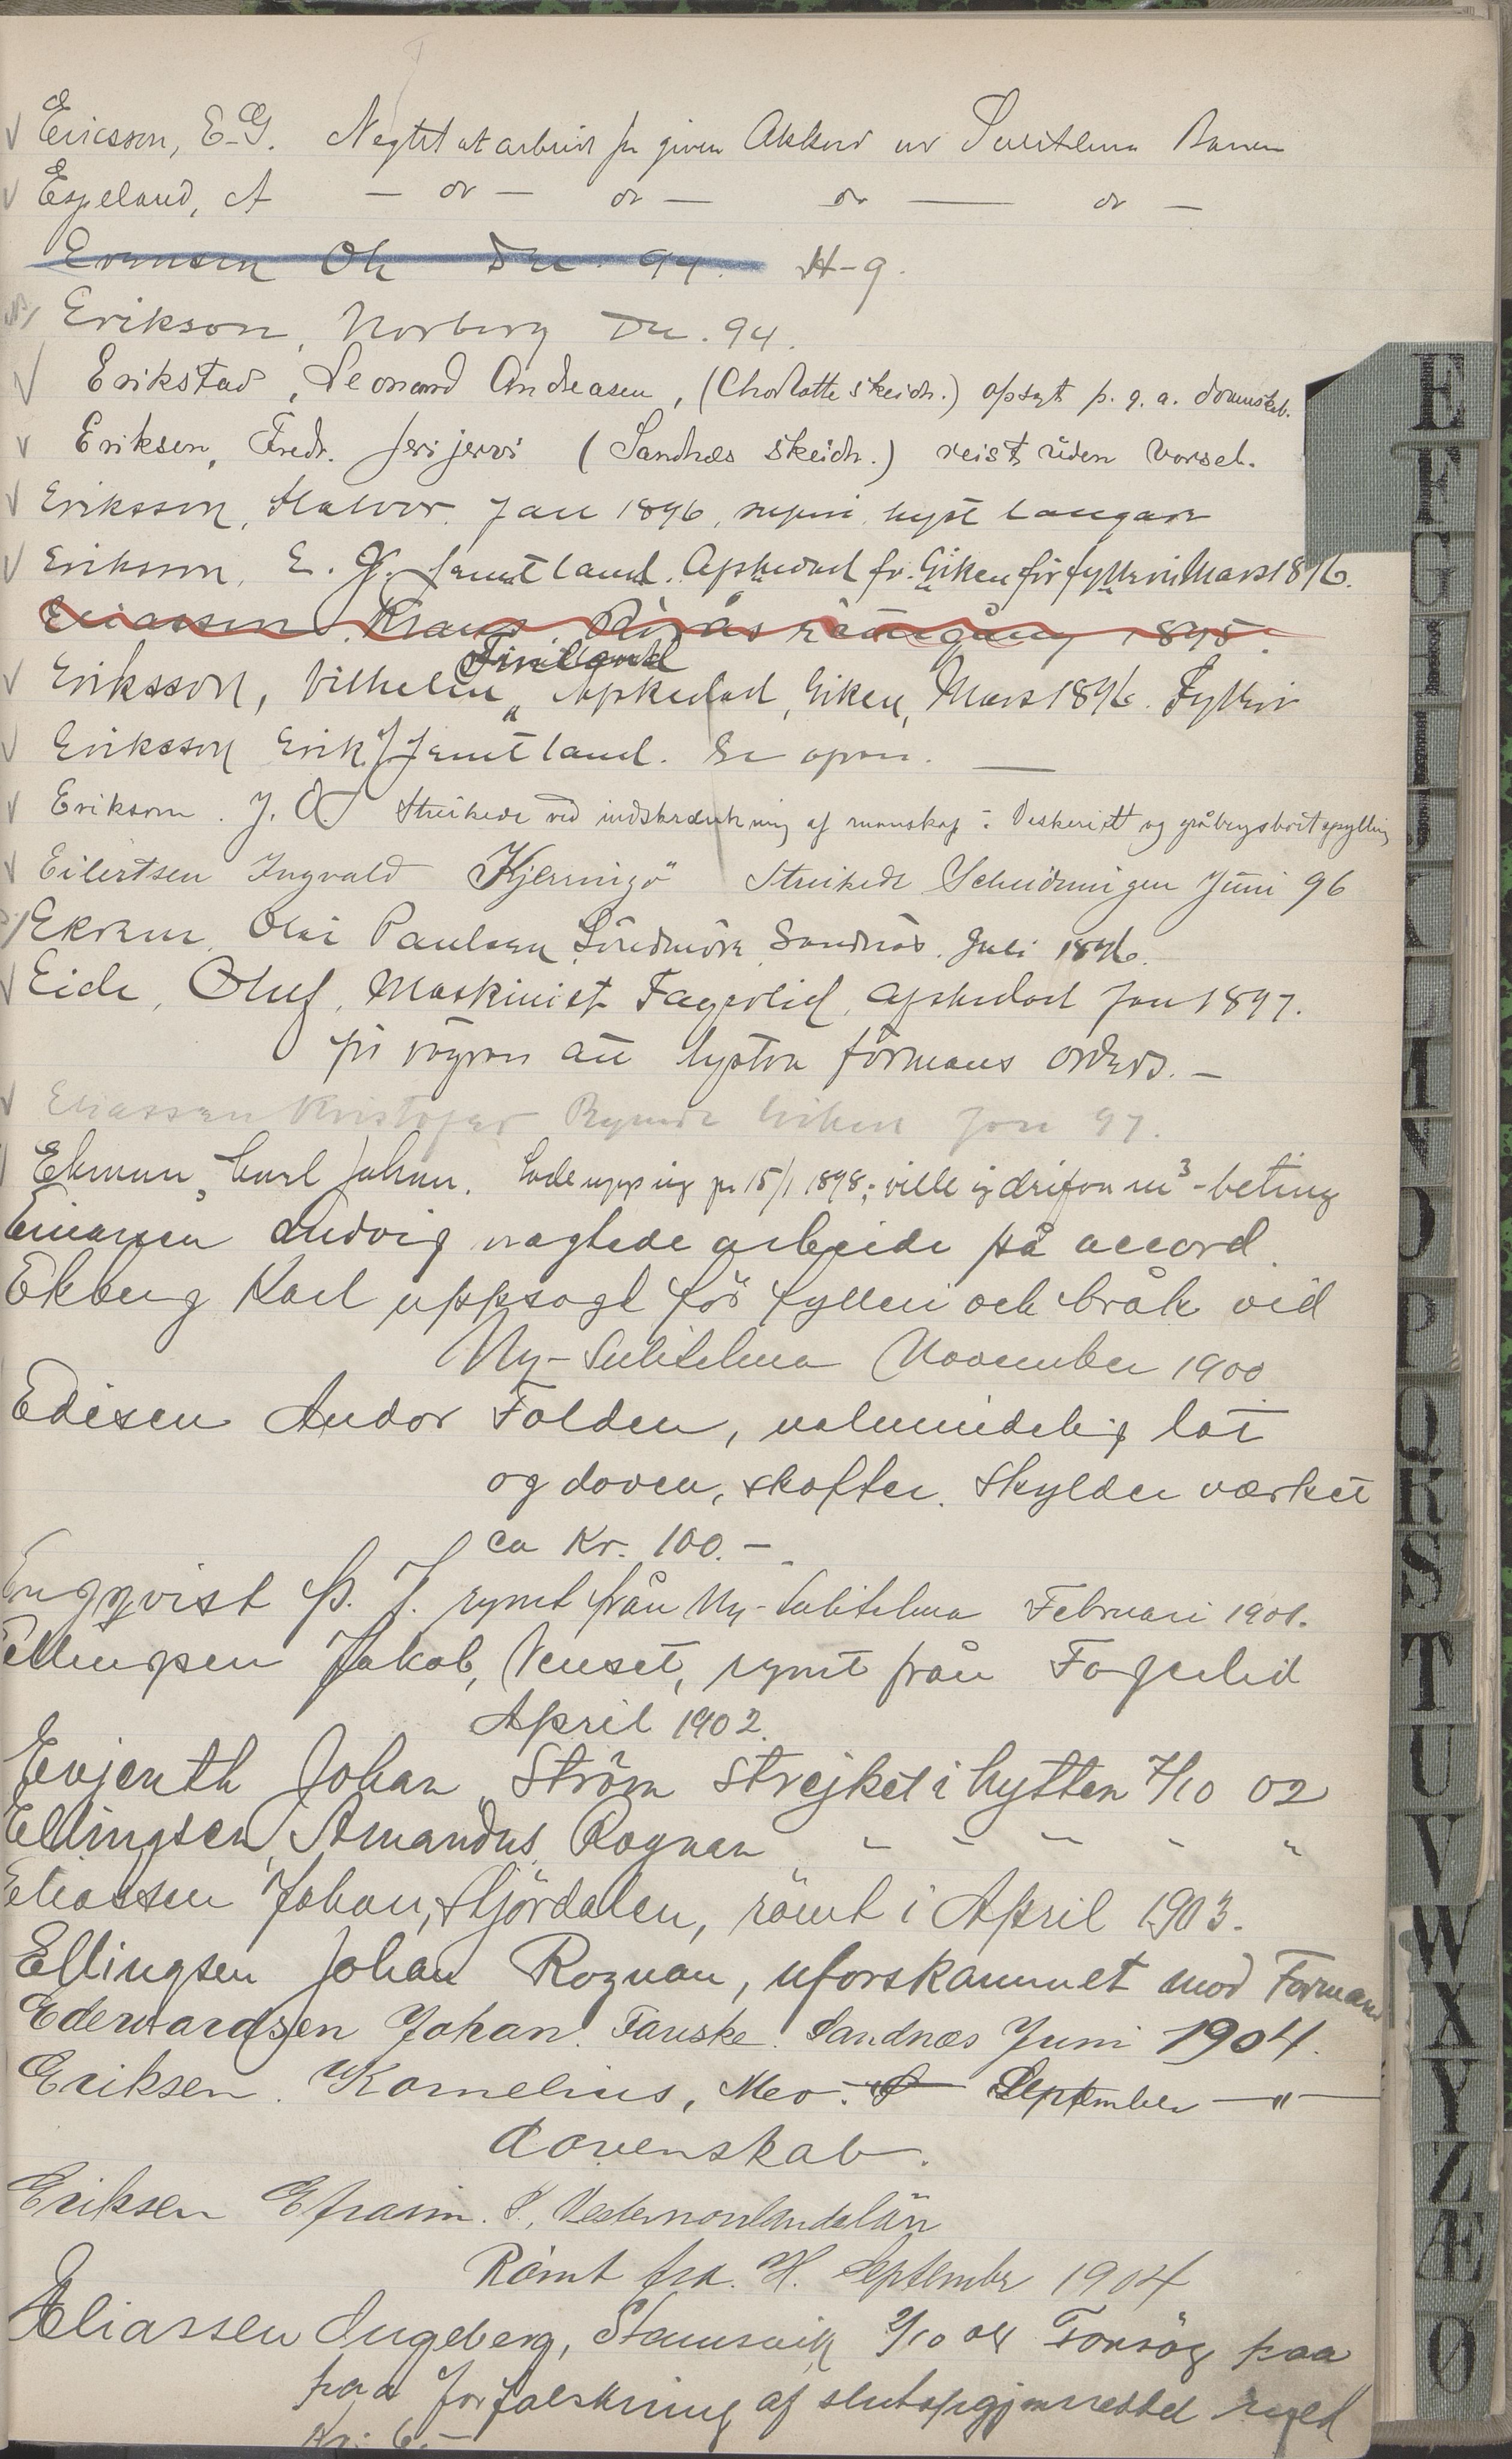 Ericsson, E.G. Negtet at arbeide for given Akkord ved Sulitelma Banen
Espeland, A — do — do — do — do —
Evensen Ole Dec. 94. H-g.
Erikson, Norberg Dec. 94.
Erikstad, Leonard Andreasen, (Charlotte skeidn.) opsagt p. g. a. dovenskab.
Eriksen, Fredr. Jerijervi (Sandnæs Skeidn.) reist uden varsel.
Eriksson, Halvor. Jan 1896, hyst
Eriksson, E. G. Jemtland. Afskedad fr. Giken för fylleri Mars 1896.
Eliassen, Röros 1895.
Finland
Eriksson, Vilhelm, Afskedad, Giken, Mars 1896. Fylleri
Eriksson Erik J Jemtland. Se ofvan. —
Erikson. J. O. Streikede ved indskrænkning af mandskap i
Eilertsen Ingvald Kjerringö Streikede Scheidningen Juni 96
Ekrem, Olai Paulsen Söndmöre Sandnäs. Juli 1896.
Eide, Oluf, Maskinist Fagerlid, afskedad Jan 1897.
för vägran att lystra förmans orders. —
Eliassen Kristofer Rymde Giken Jan 97.
Ekman, Carl Johan. Sade upp sig pr 15/1 1898; ville ej drifva m³-beting
Einarsen Ludvig vægtede arbeide på accord.
Ekberg Karl uppsagt för fylleri och bråk vid
Ny-Sulitelma November 1900
Edisen Andor Folden, ualmindelig lat
og doven, skofter. Skylder værket
ca Kr. 100.—
Engqvist P. J. rymt från Ny-Sulitelma Februari 1901.
Ellingsen Jakob, Venset, rymt från Fagerlid
April 1902.
Evjenth Johan Ström Strejket i hytten 7/10 02
Ellingsen, Amandus Rognan " - - - - "
Eliassen Johan, Stjördalen, römt i April 1903.
Ellingsen Johan Rognan, uforskammet mod Formand
Ederwardsen Johan. Fauske. Sandnæs Juni 1904.
Eriksen. Kornelius, Meo. September —"—
dovenskab.
Eriksen Efraim. S., Vesternorrlandslän
Römt fra. H. September 1904
Eliassen Ingeberg, Stamsvik 2/10 04 Forsög paa
paa forfalskning af slutopgjørsseddel
Kr. 6.—
E
F
G
H
I
J
K
L
M
N
O
P
Q
R
S
T
U
V
W
X
Y
Z
Æ
Ø